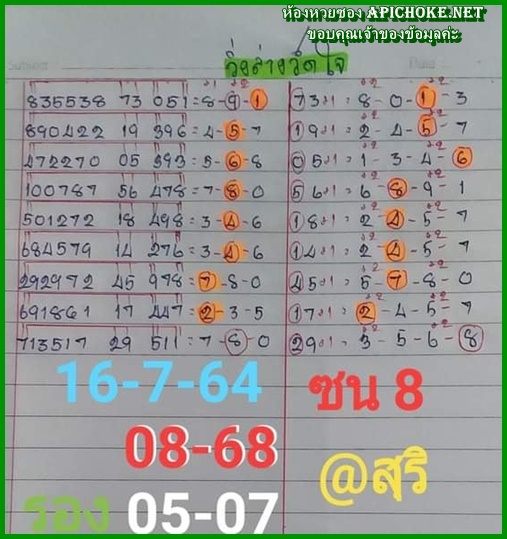 ห้องหวยซอง APICHOKE.NET
ขอบคุณเจ้าของข้อมูลค่ะ
วิ่งล่างวัดใจ
835538 73 051 = 8-9-1
731 = 8-0-1-3
890422 19 396 = 4-5-7
191 = 2-4-5-7
472270 05 393 = 5-6-8
051 = 1-3-4-6
100787 56 478 = 7-8-0
561 = 6-8-9-1
501272 18 498 = 3-4-6
181 = 2-4-5-7
684579 14 276 = 3-4-6
141 = 2-4-5-7
292972 45 978 = 7-8-0
451 = 5-7-8-0
691861 17 447 = 2-3-5
171 = 2-4-5-7
713517 29 511 = 7-8-0
291 = 3-5-6-8
16-7-64
ชน 8
08-68
@สริ
รอง 05-07